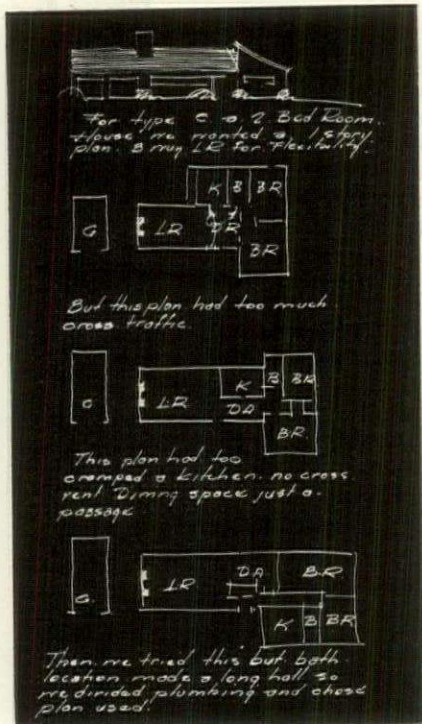 For type C a 2 Bed Room.
House we wanted a 1 story
plan. B mug LR for Flexibility.
K B BR
G LR DR
BR
But this plan had too much
cross traffic.
K B BR
G LR DA
BR.
This plan had too
cramped a kitchen. no cross
vent Dining space just a
passage
DA BR
G. LR
K B BR
Then we tried this but bath
location made a long hall so
we divided plumbing and chose
plan used.